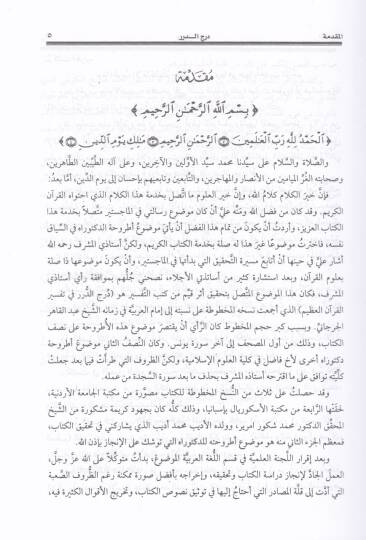 المقدمة درج الــدرر ٥
مُقَدِّمَة
﴿ بِسْمِ ٱللَّهِ ٱلرَّحْمَٰنِ ٱلرَّحِيمِ ﴾
﴿ ٱلْحَمْدُ لِلَّهِ رَبِّ ٱلْعَٰلَمِينَ ٱلرَّحْمَٰنِ ٱلرَّحِيمِ مَٰلِكِ يَوْمِ ٱلدِّينِ ﴾
والصَّلاة والسَّلام على سيِّدنا محمد سيِّد الأوَّلين والآخرين، وعلى آله الطَّيِّبين الطَّاهرين،
وصحابته الغُرِّ الميامين من الأنصار والمهاجرين، والتَّابعين وتابعيهم بإحسان إلى يوم الدِّين، أمَّا بعدُ:
فإنَّ خيرَ الكلامِ كلامُ الله، وإنَّ خيرَ العلوم ما اتَّصل بخدمة هذا الكلام الذي احتواه القرآن
الكريم. وقد كان من فضل الله ومنِّه عليَّ أنْ كان موضوع رسالتي في الماجستير متَّصلاً بخدمة هذا
الكتاب العزيز، وأردتُ أنْ يكونَ من تمام هذا الفضل أنْ يأتيَ موضوعُ أطروحة الدكتوراه في السِّياق
نفسه، فاخترتُ موضوعًا غيرَ هذا له صلة بخدمة الكتاب الكريم، ولكنَّ أستاذي المشرف رحمه الله
أشار عليَّ في حينها أنْ أتابعَ مسيرة التَّحقيق التي بدأتها في الماجستير، وأنْ يكونَ موضوعها ذا صلة
بعلوم القرآن، وبعد استشارة كثير من أساتذتي الأجلاء، نصحني جُلُّهم بموافقة رأي أستاذي
المشرف، فكان هذا الموضوع المتَّصل بتحقيق أثر قيِّم من كتب التَّفسير هو (دُرج الدُّرر في تفسير
القرآن العظيم) الذي أجمعت نسخه المخطوطة على نسبته إلى إمام العربيَّة في زمانه الشَّيخ عبد القاهر
الجرجانيِّ. وبسبب كبر حجم المخطوط كان الرَّأي أنْ يقتصرَ موضوع هذه الأطروحة على نصف
الكتاب، وذلك من أول المصحف إلى آخر سورة يونس. وكان النِّصفُ الثاني موضوعَ أطروحة
دكتوراه أخرى لأخ فاضل في كلية العلوم الإسلامية، ولكنَّ الظروف التي طرأتْ فيما بعد جعلتْ
كلِّيَّته توافق على ما اقترحه أستاذه المشرف بحذف ما بعد سورة السَّجدة من عمله.
وقد حصلتُ على ثلاث من النُّسخ المخطوطة للكتاب مصوَّرة من مكتبة الجامعة الأردنية،
لحقتْها الرَّابعة من مكتبة الأسكوريال بإسبانيا، وذلك كلُّه كان بجهود كريمة مشكورة من الشَّيخ
المحقِّق الدكتور محمد شكور أمرير، وولده الأديب محمد أديب الذي يشاركني في تحقيق الكتاب،
فمعظم الجزء الثاني منه هو موضوع أطروحته للدكتوراه التي توشك على الإنجاز بإذن الله.
وبعد إقرار اللَّجنة العلميَّة في قسم اللُّغة العربيَّة الموضوعَ، بدأتُ متوكِّلاً على الله عزَّ وجلَّ،
العملَ الجادَّ لإنجاز دراسة الكتاب وتحقيقه، وإخراجه بأفضل صورة ممكنة رغم الظُّروف الصَّعبة
التي أدَّت إلى قلَّة المصادر التي أحتاجُ إليها في توثيق نصوص الكتاب، وتخريج الأقوال الكثيرة فيه،